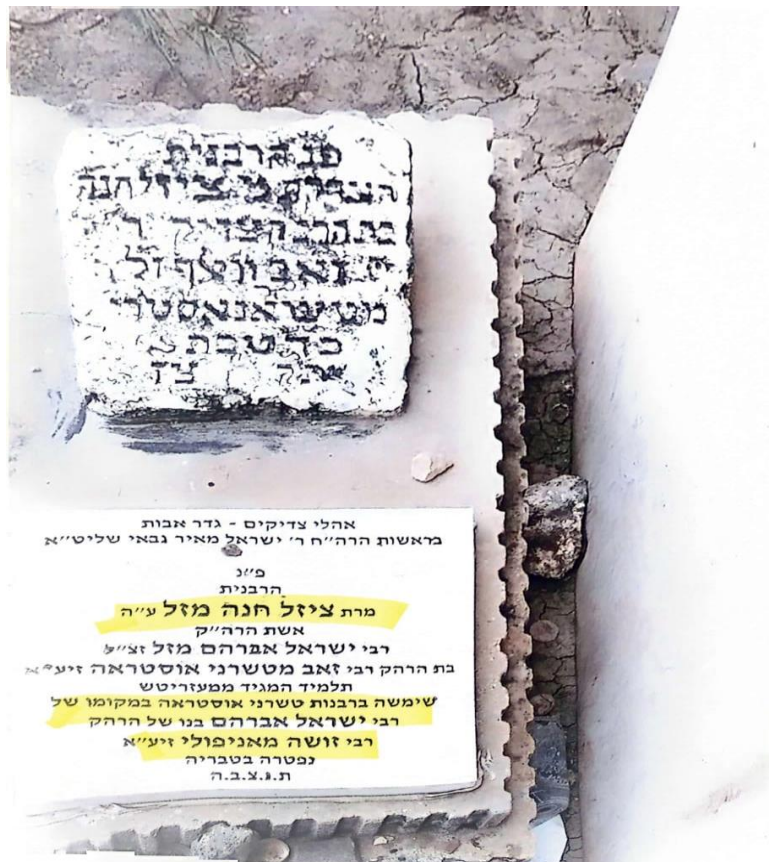 פנ הרבנית
הצדקת מ' ציזל חנה
הצדיק
זאב וואלף זל
כד טבת
אהלי צדיקים - גדר אבות
בראשות הרה״ח ר' ישראל מאיר גבאי שליט״א
פ״נ
הרבנית
מרת ציזל חנה מזל ע״ה
אשת הרה״ק
רבי ישראל אברהם מזל זצ״ל
בת הרהק רבי זאב מטשרני אוסטראה זיע״א
תלמיד המגיד ממעזריטש
שימשה ברבנות טשרני אוסטראה במקומו של
רבי ישראל אברהם בנו של הרהק
רבי זושה מאניפולי זיע״א
נפטרה בטבריה
ת.נ.צ.ב.ה